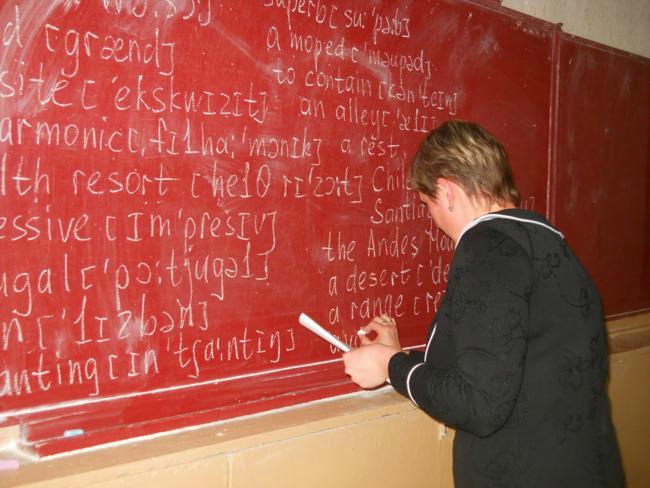 d [grænd]
site [ˈekskwɪzɪt]
armonic [ˌfɪlhaːˈmɔnɪk]
lth resort [helθ rɪˈzɔːt]
essive [ɪmˈpresɪv]
ugal [ˈpɔːtjugəl]
n [ˈlɪzbən]
anting [ɪnˈtʃaːntɪŋ]
superb [suːˈpəːb]
a moped [ˈməupəd]
to contain [kənˈteɪn]
an alley [ˈælɪ]
a rest
Chil
Santia
the Andes Mo
a desert [ˈde
a range [re